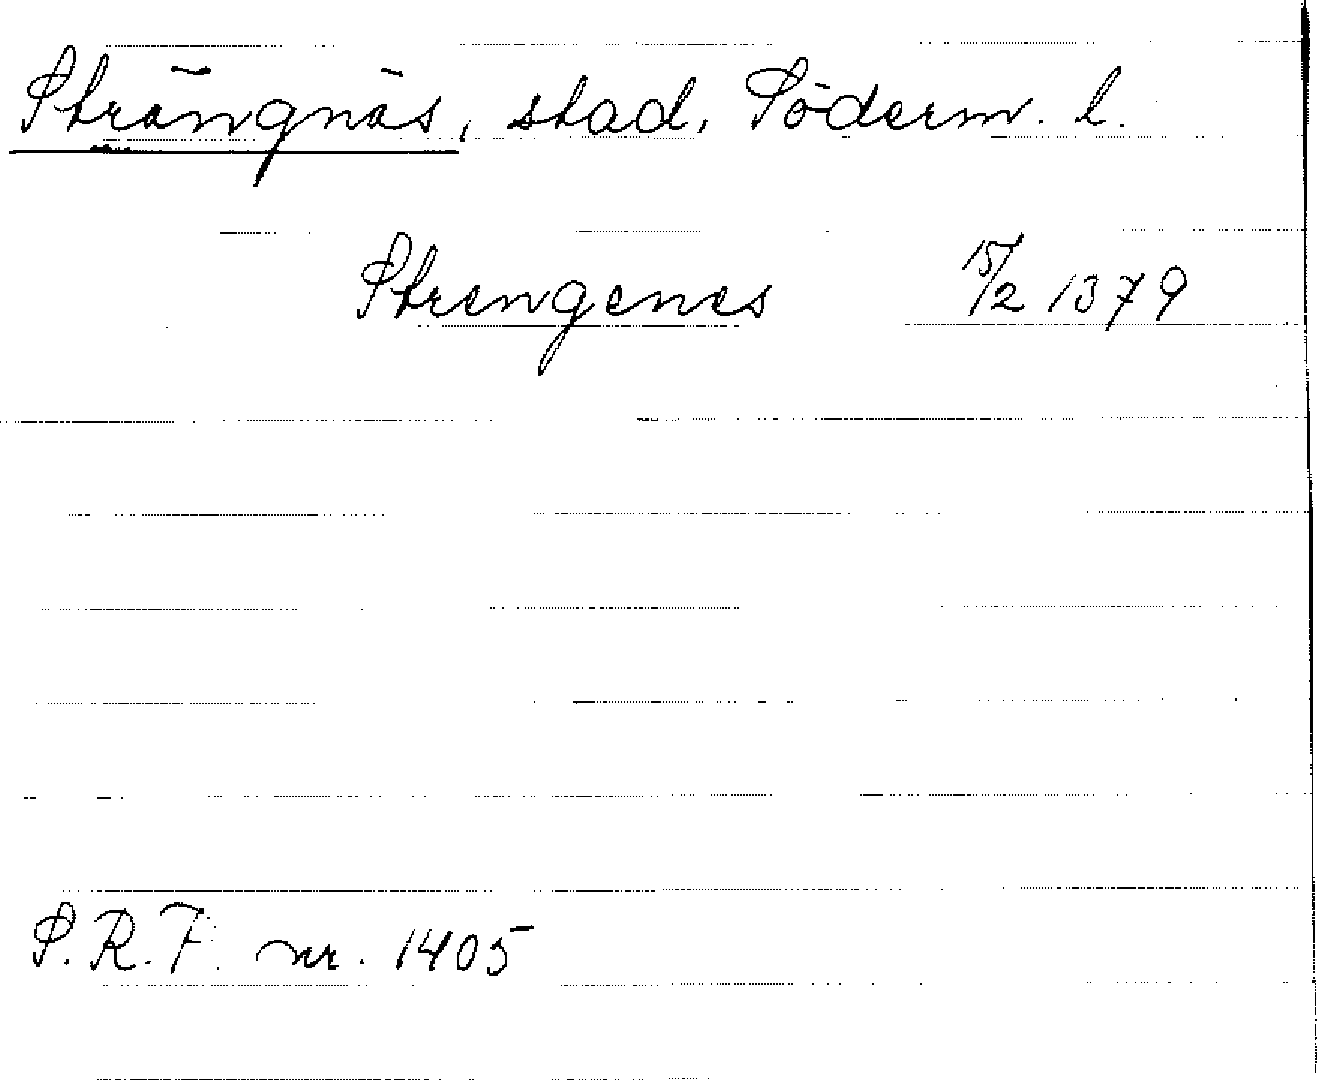 Strängnäs, stad, Söderm. l.
Strengenes 15/2 1379
S.R.P. nr. 1405